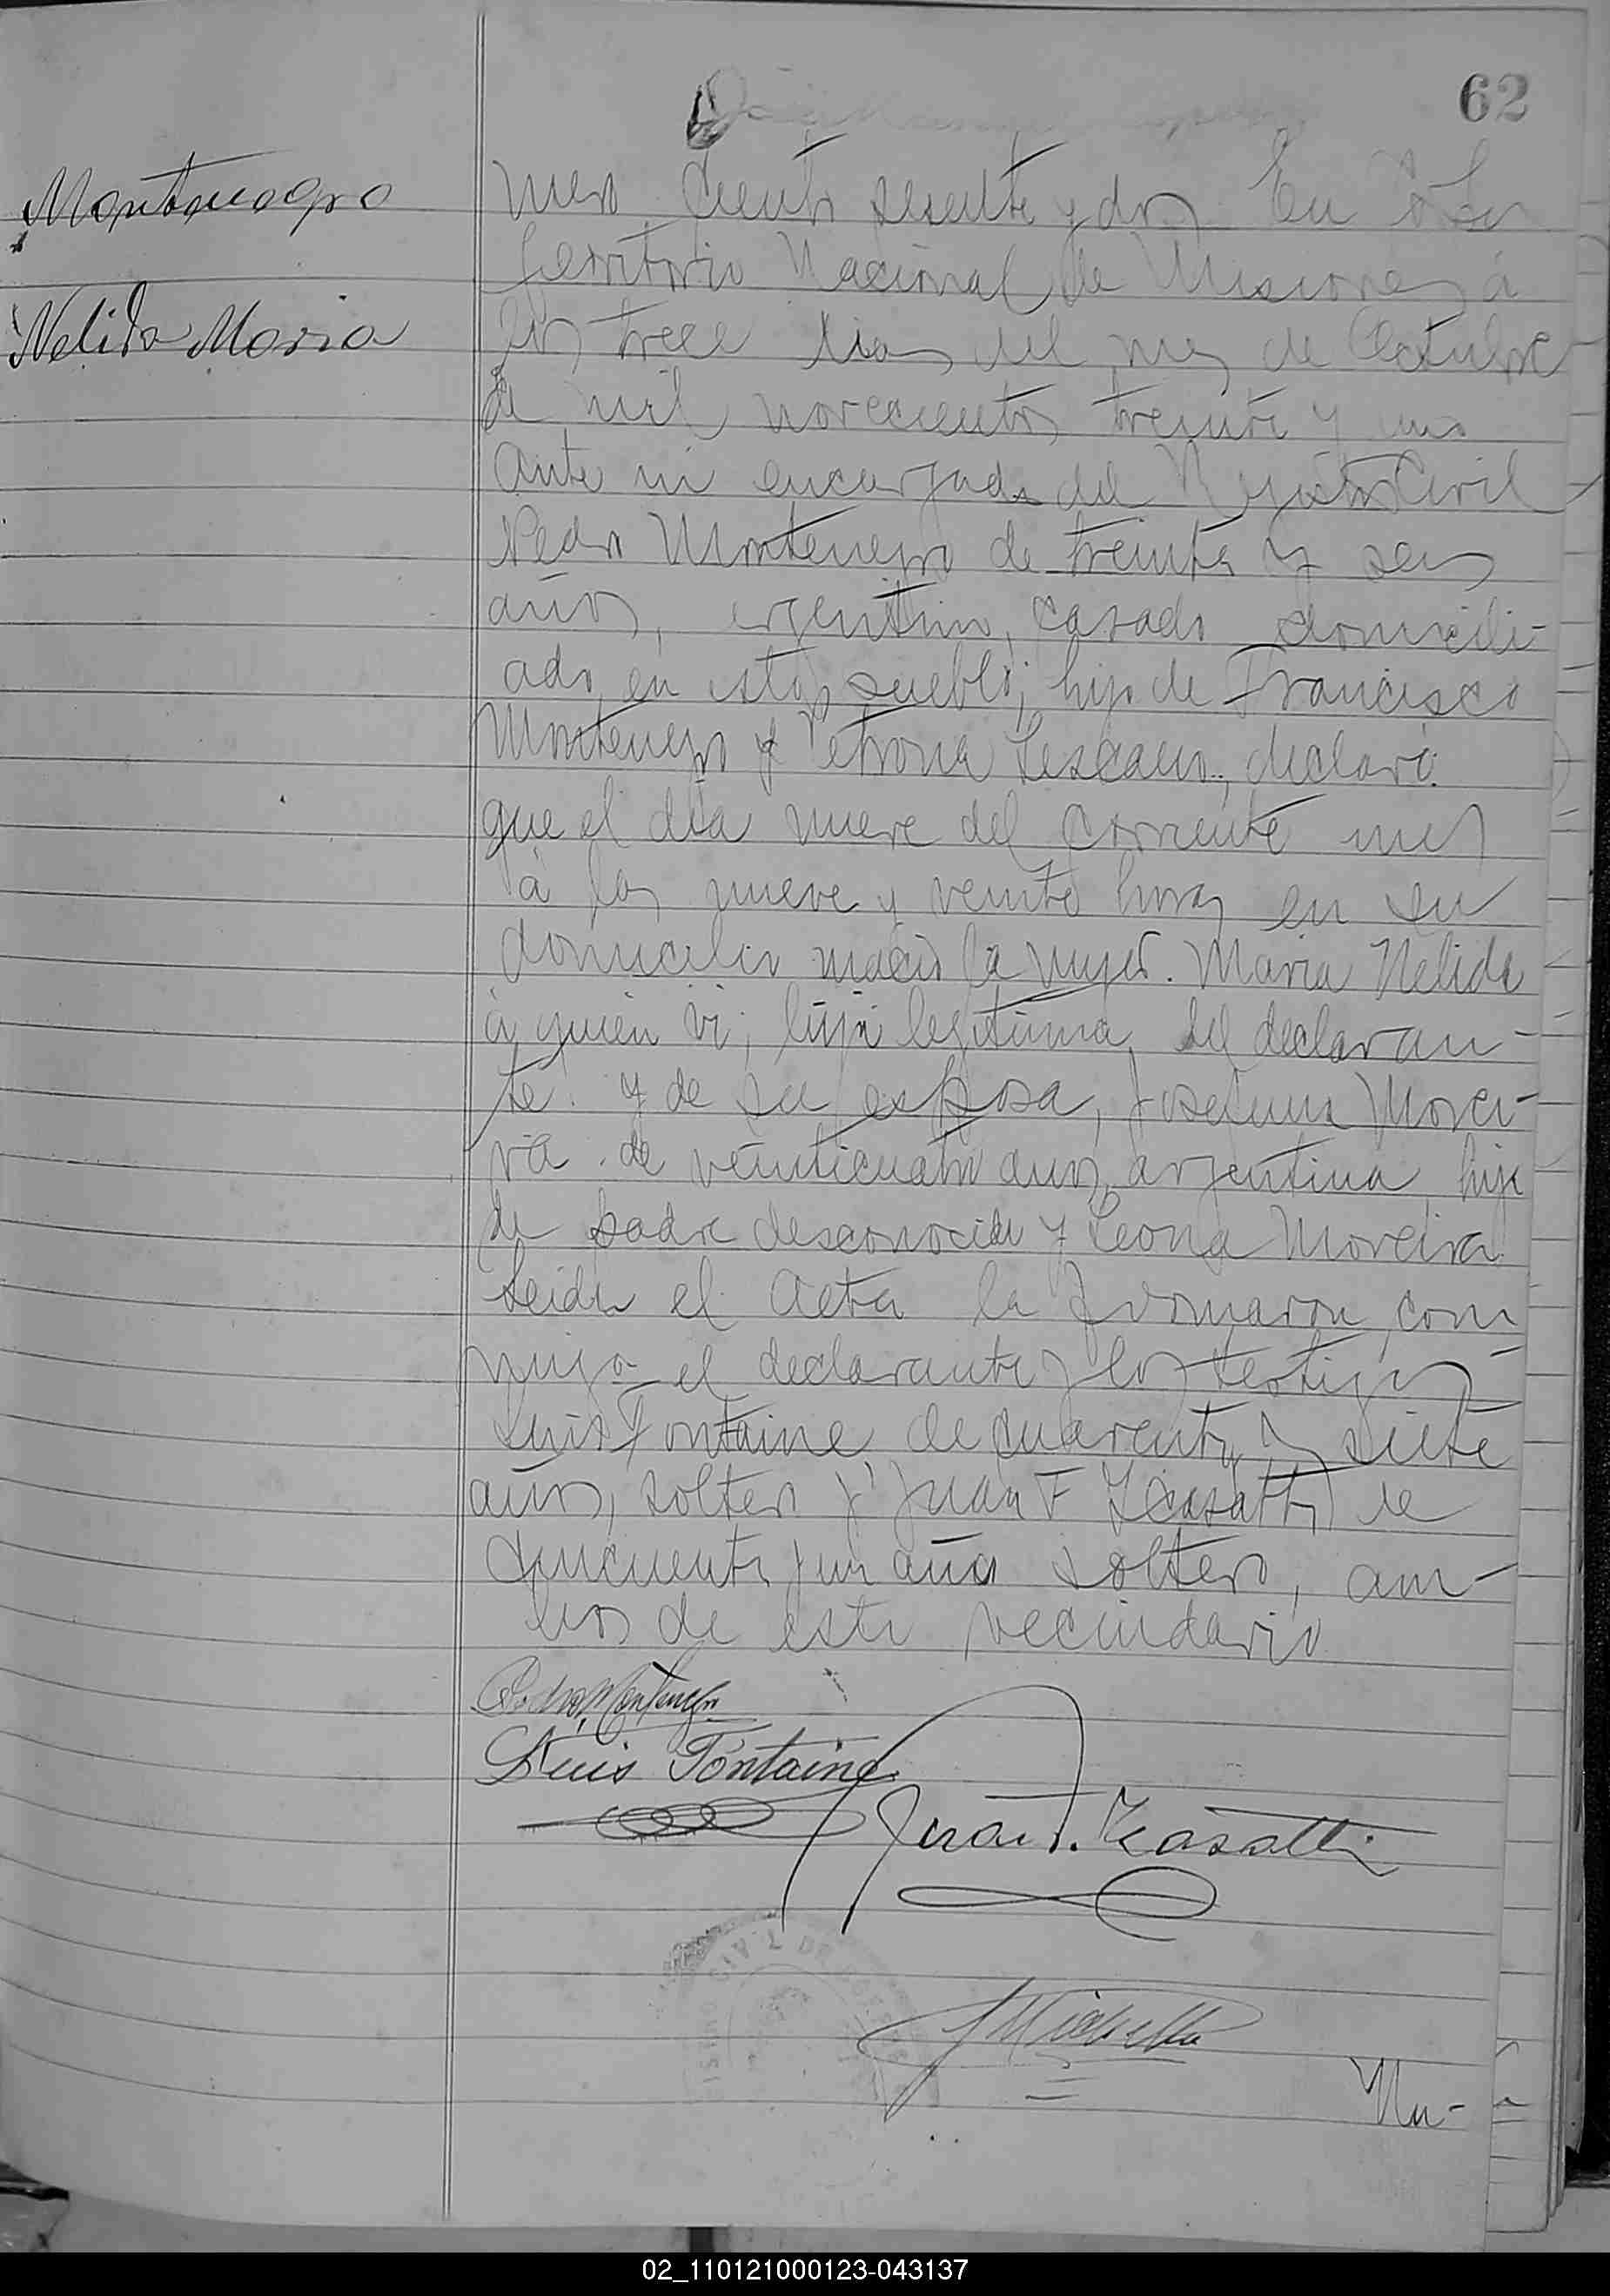 62
Montenegro
Nelida Maria
mero ciento sesenta y dos En
Territorio Nacional de Misiones, á
los trece dias del mes de Octubre
de mil novecientos treinta y uno
ante mi encargado del Registro Civil
Pedro Montenegro de treinta y seis
años, argentino, casado domicili-
ado en este pueblo; hijo de Francisco
Montenegro y Petrona Lescano, declaró:
que el día nueve del corriente mes
á las nueve y veinte horas en su
domicilio nació la mujer. Maria Nelida
á quien vi; hija legitima del declaran-
te. y de su esposa, Morei-
ra. de veinticuatro años, argentina, hija
de padre desconocido y Leona Moreira
Leida el Acta la firmaron con
migo el declarante y los testigos
Luis Fontaine de cuarenta y siete
años, soltero y Juan F de
cincuenta y un años soltero, am-
bos de este vecindario
Pedro Montenegro
Luis Fontaine
Juan F.
Nu-
02_110121000123-043137